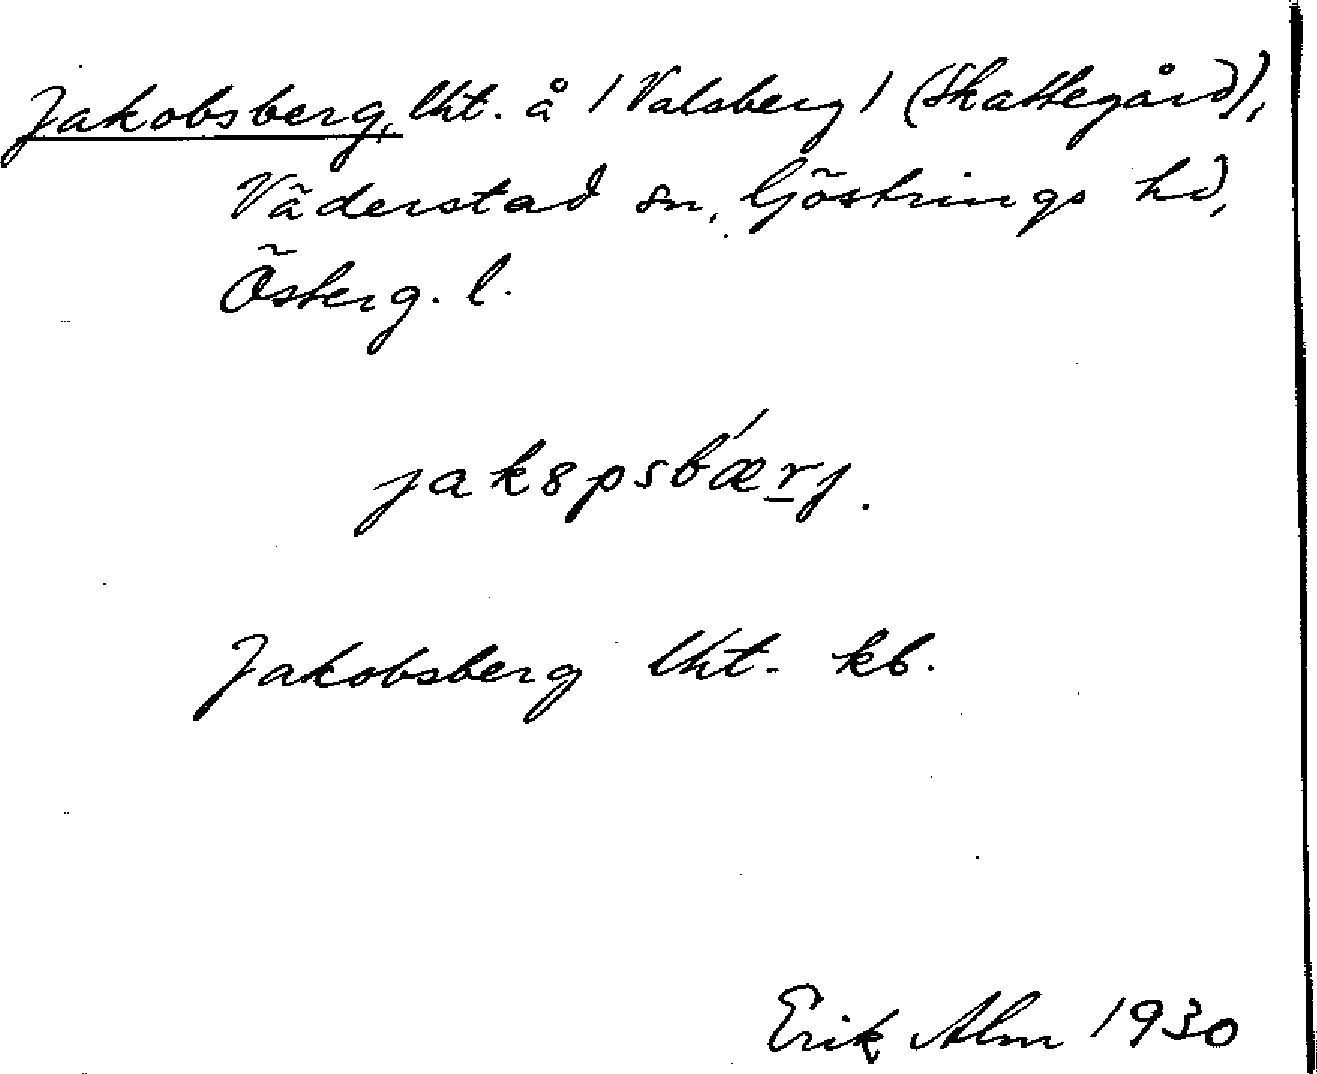 Jakobsberg, lht. å 1 Valsberg 1 (Skattegård),
Väderstad sn, Göstrings hd,
Österg. l.
jak8psbærj.
Jakobsberg lht. kb.
Erik Alm 1930